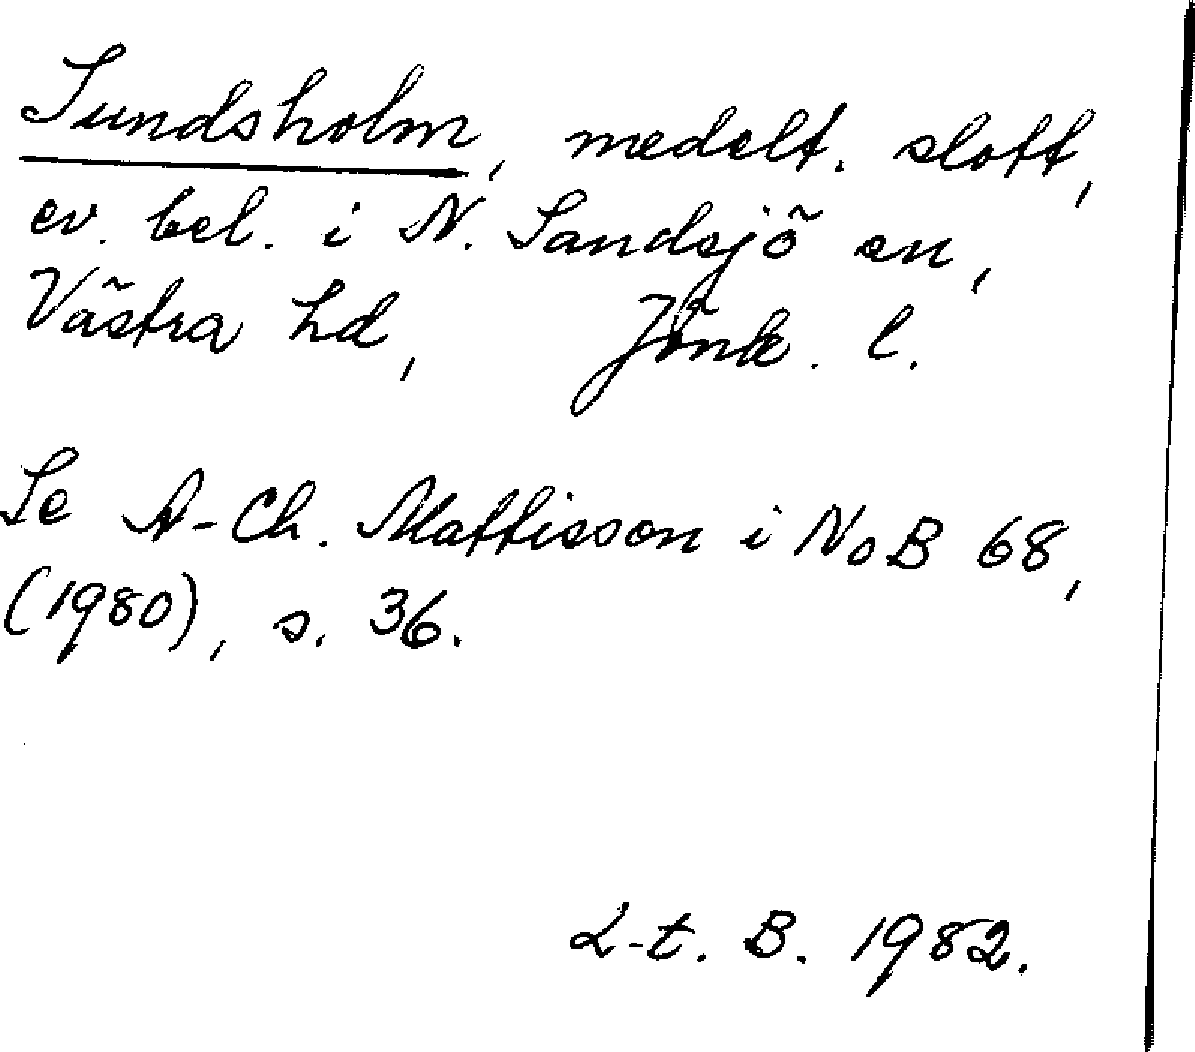 Sundsholm, medelt. slott,
ev. bel. i N. Sandsjö sn,
Västra hd, Jönk. l.
Se A-Ch. Mattisson i NoB 68,
(1980), s. 36.
L-t. B. 1982.